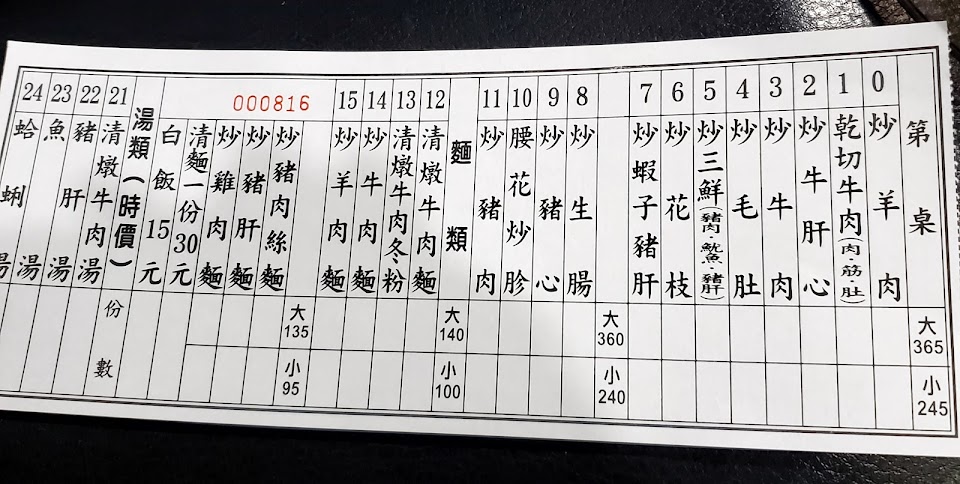 第桌
大 365
小 245
0 炒羊肉
1 乾切牛肉(肉·筋·肚)
2 炒牛肝心
3 炒牛肉
4 炒毛肚
5 炒三鮮(豬肉·魷魚·豬肝)
6 炒花枝
7 炒蝦子豬肝
大 360
小 240
8 炒生腸
9 炒豬心
10 腰花炒胗
11 炒豬肉
麵類
大 140
小 100
12 清燉牛肉麵
13 清燉牛肉冬粉
14 炒牛肉麵
15 炒羊肉麵
000816
大 135
小 95
炒豬肉絲麵
炒豬肝麵
炒雞肉麵
清麵一份30元
白飯15元
湯類(時價)
份數
21 清燉牛肉湯
22 豬肝湯
23 魚湯
24 蛤蜊湯